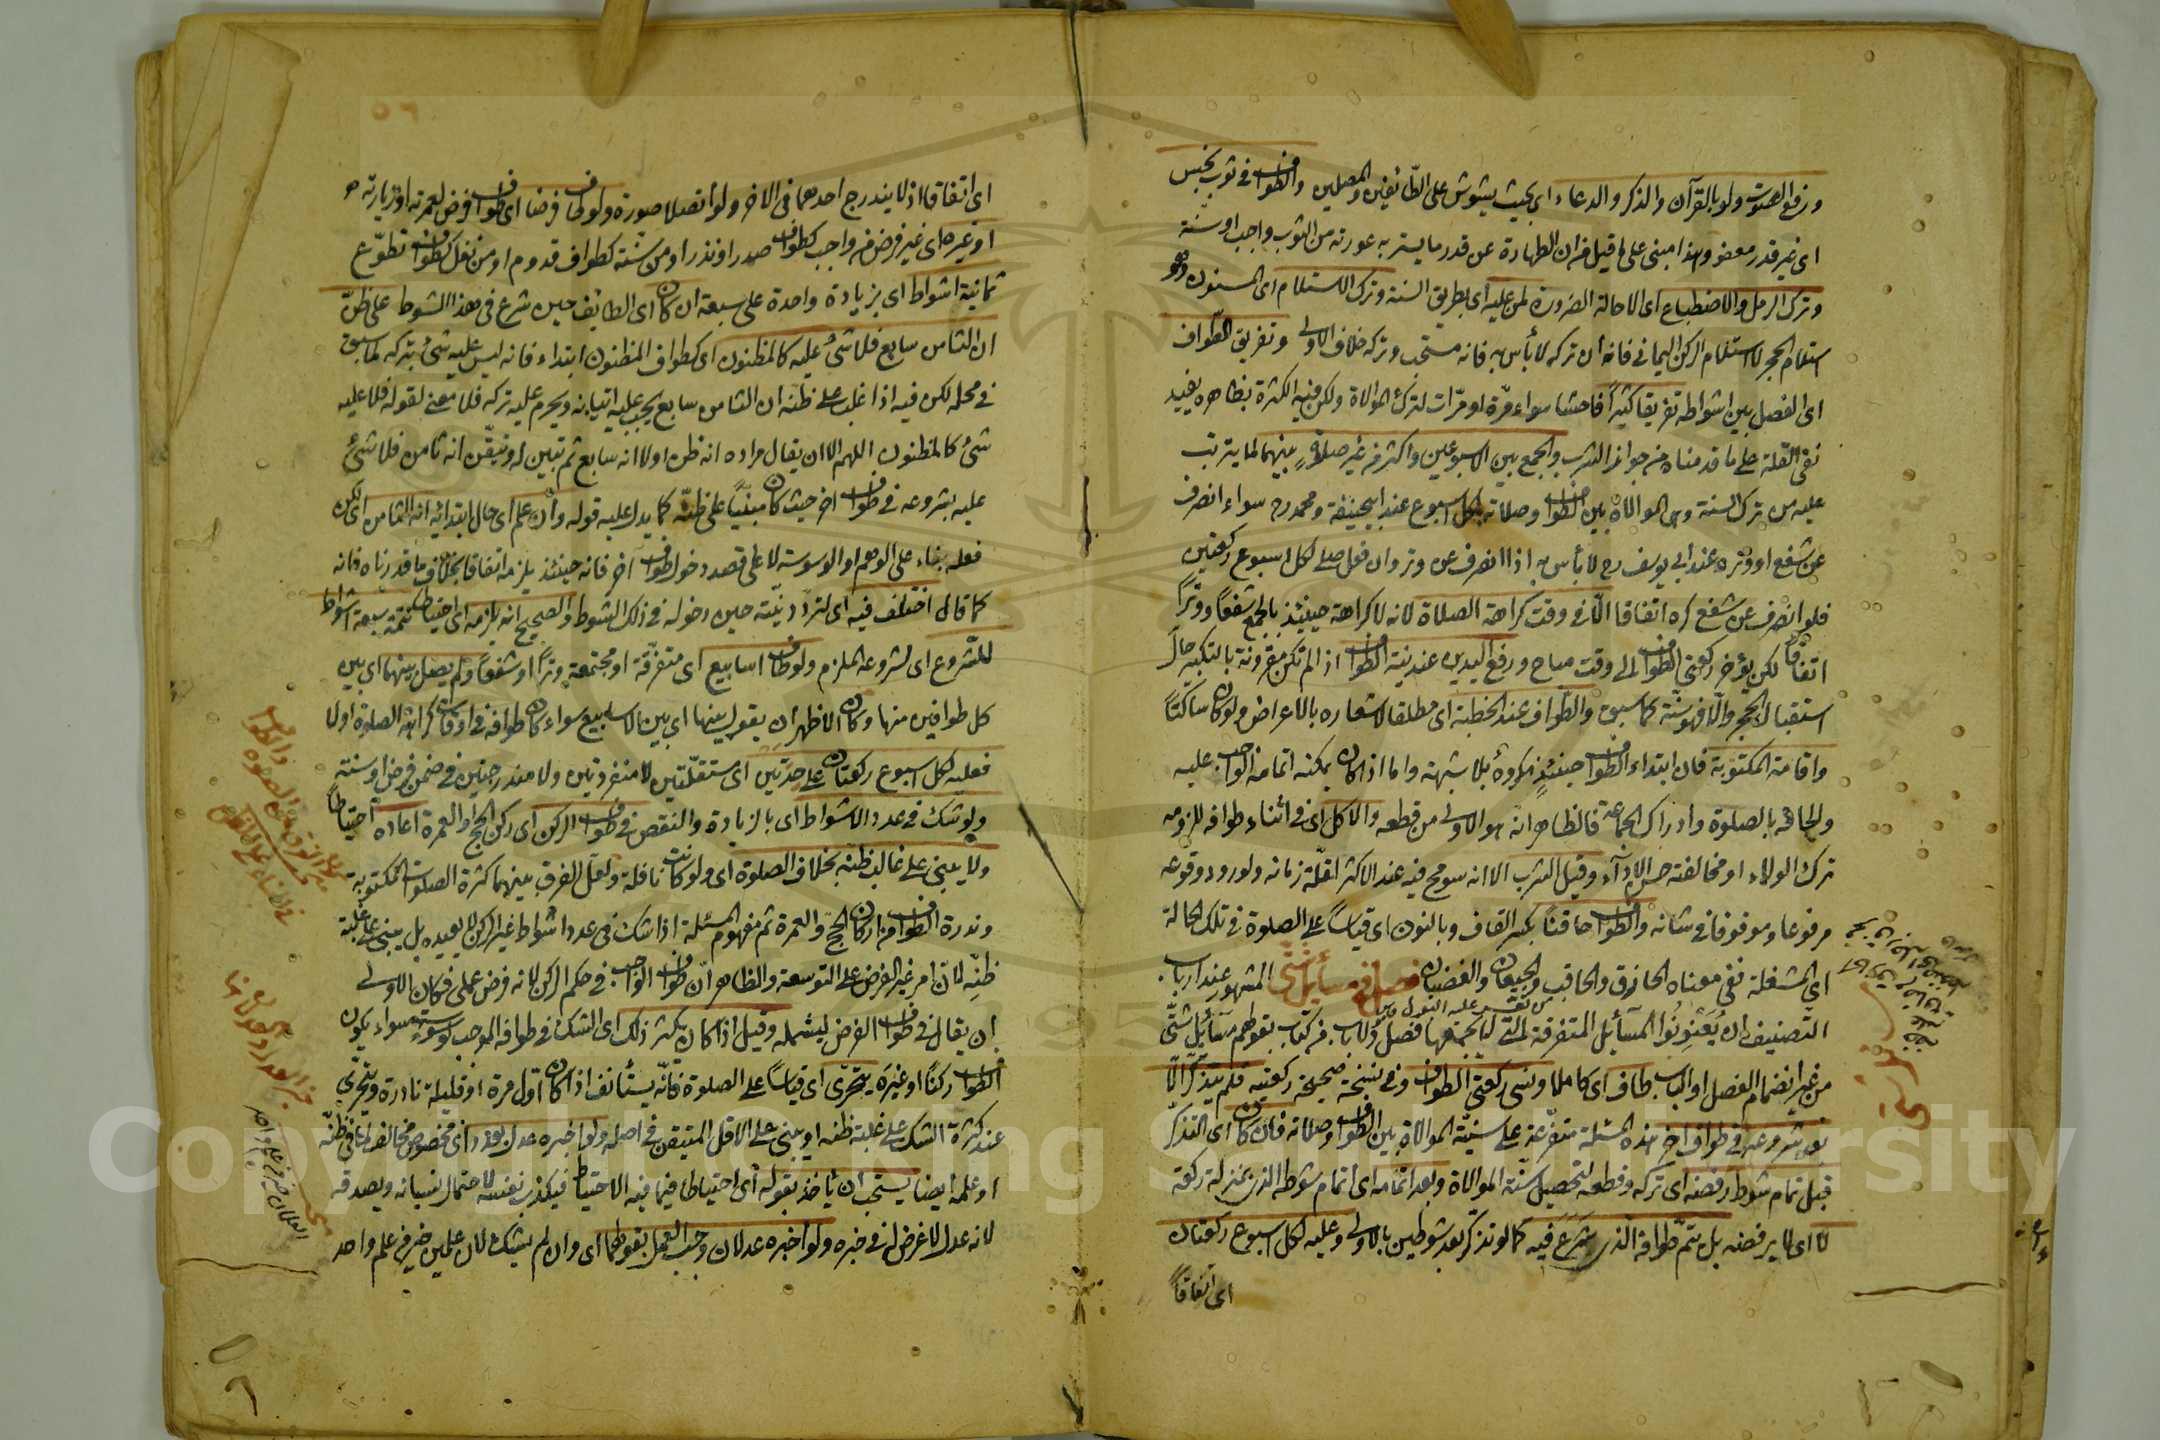 ورفع الصوت ولو بالقرآن والذكر والدعاء اى بحيث يشوش على الطائفين والمصلين والطواف فى ثوب نجس
اى غير قدر معفو وهذا مبنى على ما قيل من ان الطهارة عن قدر ما يستر به عورته من الثوب واجب او سنة
وترك الرمل والاضطباع اى الا حالة الضرورة لمن عليه اى بطريق السنة وترك الاستلام اى المسنون وهو
استلام الحجر لا استلام الركن اليمانى فانه ان تركه لا بأس به فانه مستحب وتركه خلاف الاولى وتفريق الطواف
اى الفصل بين اشواطه تفريقا كثيرا فاحشا سواء مرة او مرات لترك الموالاة ولكن فيه الكثرة بظاهره يفيد
نفى القلة على ما قدمناه من جواز الشرب والجمع بين الاسبوعين واكثر من غير صلوة بينهما لما يترتب
عليه من ترك السنة وهى الموالاة بين الطواف وصلاته لكل اسبوع عند ابيحنيفة ومحمد رح سواء انصرف
عن شفع او وتر وعند ابى يوسف رح لا بأس به اذا انصرف عن وتر وان فعل صلى لكل اسبوع ركعتين
فلو انصرف عن شفع كره اتفاقا الا فى وقت كراهة الصلاة لانه لا كراهة حينئذ بالجمع شفعا ووترا
اتفاقا لكن يؤخر ركعتى الطواف الى وقت مباح ورفع اليدين عند نية الطواف اذا لم تكن مقرونة بالتكبير حال
استقبال الحجر والا فهو سنة كما سبق والطواف عند الخطبة اى مطلقا لاشعاره بالاعراض ولو كان ساكتا
واقامة المكتوبة فان ابتداء الطواف حينئذ مكروه بلا شبهة واما اذا كان يمكنه اتمامه الواجب عليه
والحاقه بالصلوة وادراك الجماعة فالظاهر انه هو الاولى من قطعه والاكل اى فى اثناء طوافه للزومه
ترك الولاء او مخالفته حسن الادآء وقيل الشرب الا انه سومح فيه عند الاكثر لقلة زمانه ولورود وقوعه
مرفوعا وموقوفا فى شانه والطواف حاقنا بكسر القاف وبالنون اى قياسا على الصلوة فى تلك الحالة
اى المشغلة ففى معناه الحازق والحاقب والجيعان والغضبان فصل فى مسائل شتى المشهور عند ارباب
التصنيف ان يعنونوا المسآئل المتفرقة التى لم يجمعها فصل ولا باب من كتاب بقولهم مسآئل شتى
من غير انضمام الفصل او الباب طاف اى كاملا ونسى ركعتى الطواف وفى نسخة صحيحة ركعتيه فلم يتذكر الا
بعد شروعه فى طواف اخر هذه المسئلة متفرعة على سنية الموالاة بين الطواف وصلاته فان كان اى التذكر
قبل تمام شوط رفضه اى تركه وقطعه لتحصيل سنة الموالاة وبعد اتمامه اى اتمام شوطه الذى بمنزلة ركعة
لا اى لا يرفضه بل يتم طوافه الذى شرع فيه كما لو تذكر بعد شوطين بالاولى وعليه لكل اسبوع ركعتان
اى اتفاقا
اى اتفاقا اذ لا يندرج احدهما فى الاخر ولو اتصلا صورة ولو طاف فرضا اى طواف فرض لعمرته او زيارته
او غيره اى غير فرض من واجب كطواف صدر او نذر او من سنة كطواف قدوم او من نفل كطواف تطوع
ثمانية اشواط اى بزيادة واحدة على سبعة ان كان اى الطائف حين شرع فى هذا الشوط على ظن
ان الثامن سابع فلا شئ عليه كالمظنون اى كطواف المظنون ابتداء فانه ليس عليه شئ بتركه لما سبق
فى محله لكن فيه اذا غلب على ظنه ان الثامن سابع يجب عليه اتيانه ويحرم عليه تركه فلا معنى لقوله فلا عليه
شئ كالمظنون اللهم الا ان يقال مراده انه ظن اولا انه سابع ثم تبين له وتيقن انه ثامن فلا شئ
عليه بشروعه فى طواف اخر حيث كان مبنيا على ظنه كما يدل عليه قوله وان علم اى حال ابتدائه انه الثامن اى لكن
فعله بناء على الوهم او الوسوسة لا على قصد دخول طواف آخر فانه حينئذ يلزمه اتفاقا بخلاف ما قدرناه فانه
كما قال اختلف فيه اى لتردد نيته حين دخوله فى ذلك الشوط والصحيح انه يلزمه اى احتياطا تتمة سبعة اشواط
للشروع اى لشروعه الملزم ولو طاف اسابيع اى متفرقة او مجتمعة وترا او شفعا ولم يصل بينهما اى بين
كل طوافين منها وكان الاظهر ان يقول بينها اى بين الاسابيع سواء كان طوافه فى اوقات كراهة الصلوة او لا
فعليه لكل اسبوع ركعتان على حدتين اى مستقلتين لا منفردتين ولا مندرجتين فى ضمن فرض او سنة
ولو شك فى عدد الاشواط اى بالزيادة والنقص فى طواف الركن اى ركن الحج او العمرة اعاده احتياطا
ولا يبنى على غالب ظنه بخلاف الصلوة اى ولو كانت نافلة ولعل الفرق بينهما كثرة الصلوات المكتوبة
وندرة الطواف من اركان الحج والعمرة ثم مفهوم المسئلة اذا شك فى عدد اشواط غير الركن لا يعيده بل يبنى على غلبة
ظنه لان امر غير الفرض على التوسعة والظاهر ان طواف الواجب فى حكم الركن لانه فرض عملى فكان الاولى
ان يقال فى طواف الفرض ليشمله وقيل اذا كان يكثر ذلك اى الشك فى طوافه الموجب لوسوسته سواء يكون
الطواف ركنا او غيره يتحرى اى قياسا على الصلوة فانه يستأنف اذا كان اول مرة او قليلة نادرة ويتحرى
عند كثرة الشك على غلبة ظنه او يبنى على الاقل المتيقن فى اصله ولو اخبره عدل بعدد اى مخصوص مخالف لما فى ظنه
او علمه ايضا يستحب ان ياخذ بقوله اى احتياطا فيما فيه الاحتياط فيكذب نفسه لاحتمال نسيانه ويصدقه
لانه عدل لا غرض له فى خبره ولو اخبره عدلان وجب العمل بقولهما اى وان لم يشك لان علمين خير من علم واحد
Copyright © King Saud University